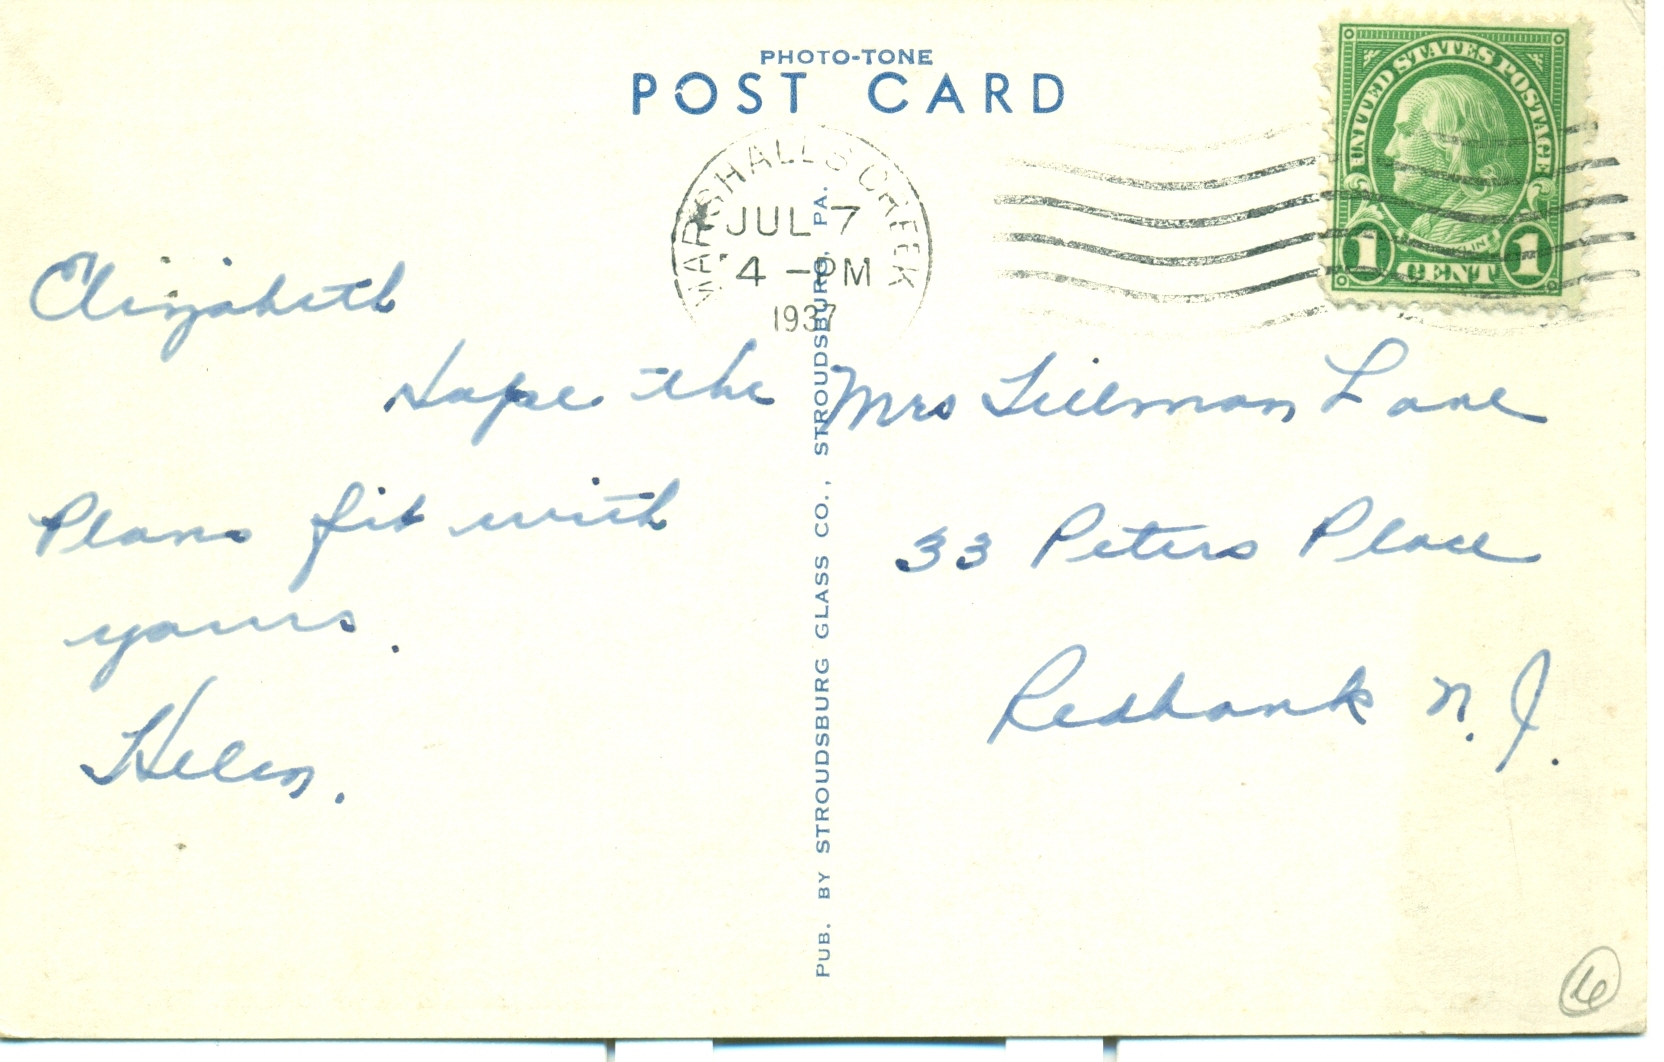 PHOTO-TONE
POST CARD
MARSHALLS CREEK
JUL 7
4 - PM
1937
UNITED STATES POSTAGE
FRANKLIN
1 CENT 1
Elizabeth
Hope the
Plans fit with
yours.
Helen.
PUB. BY STROUDSBURG GLASS CO., STROUDSBURG, PA.
Mrs Tillman Lane
33 Peters Place
Redbank N. J.
6